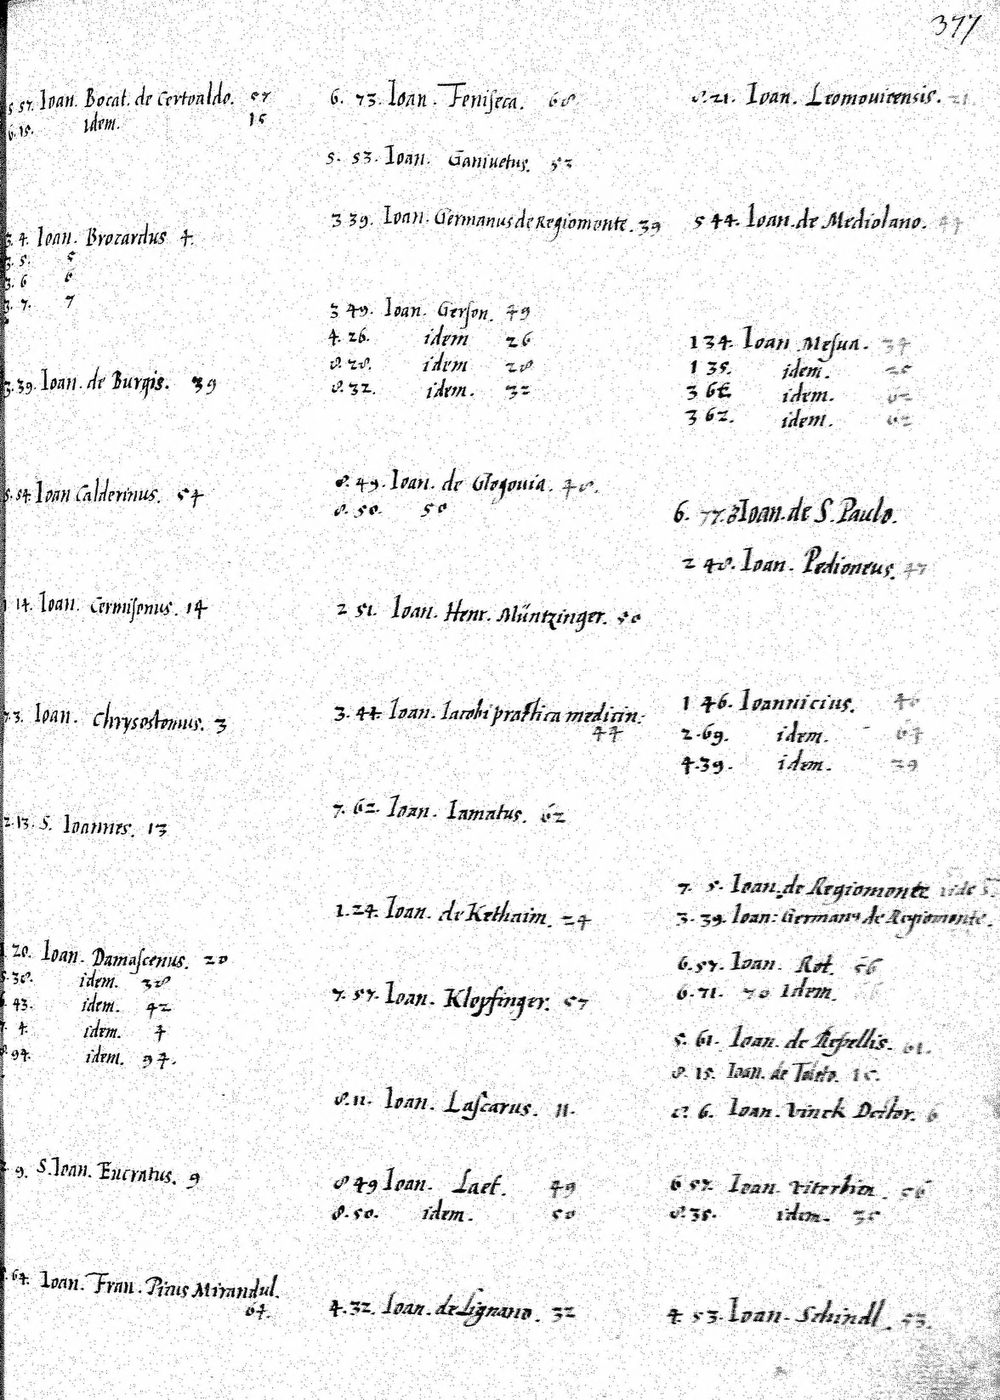 377
5 57. Ioan. Bocat. de Certoaldo. 57
6. 15. idem. 15
3. 4. Ioan. Brocardus 4.
3. 5. 5
3. 6 6
3. 7. 7
3. 39. Ioan. de Burgis. 39
5. 54. Ioan Calderinus. 54
1 14. Ioan. Cermisonus. 14
3. Ioan. Chrysostomus. 3
2. 13. S. Ioannes. 13
20. Ioan. Damascenus. 20
5. 38. idem. 38
43. idem. 42
4. idem. 4
94. idem. 94.
9. S. Ioan. Eucratus. 9
64. Ioan. Fran. Picus Mirandul.
64.
6. 73. Ioan. Feniseca. 68
5. 53. Ioan. Ganiuetus. 53
3 39. Ioan. Germanus de Regiomonte. 39
3 49. Ioan. Gerson. 49
4. 26. idem 26
8. 28. idem 28
8. 32. idem. 32
8. 49. Ioan. de Glogouia. 48.
8. 50. 50
2 51. Ioan. Henr. Müntzinger. 50
3. 44. Ioan. Iacobi practica medicin:
44
7. 62. Ioan. Iamatus. 62
1. 24. Ioan. de Kethaim. 24
7. 57. Ioan. Klopfinger. 57
8. 11. Ioan. Lascarus. 11.
8 49 Ioan. Laet. 49
8. 50. idem. 50
4. 32. Ioan. de Lignano. 32
8. 21. Ioan. Leomouicensis. 21.
5 44. Ioan. de Mediolano. 44
1 34. Ioan Mesua. 34
1 35. idem. 35
3 62 idem. 62
3 62. idem. 62
6. 77. Ioan. de S. Paulo.
2 48. Ioan. Pedioneus. 47
1 46. Ioannicius. 46
2. 69. idem. 64
4. 39. idem. 39
7. 5. Ioan. de Regiomonte vide
3. 39. Ioan: Germanus de Regiomonte.
6. 57. Ioan. Rot. 56
6. 71. 70 Idem.
5. 61. Ioan. de Repellis. 61.
8. 15. Ioan. de Toleto. 15.
8. 6. Ioan. Vinck Doctor. 6
6 57. Ioan. Viterbien. 56
8. 35. idem. 35
4. 53. Ioan. Schindl. 53.